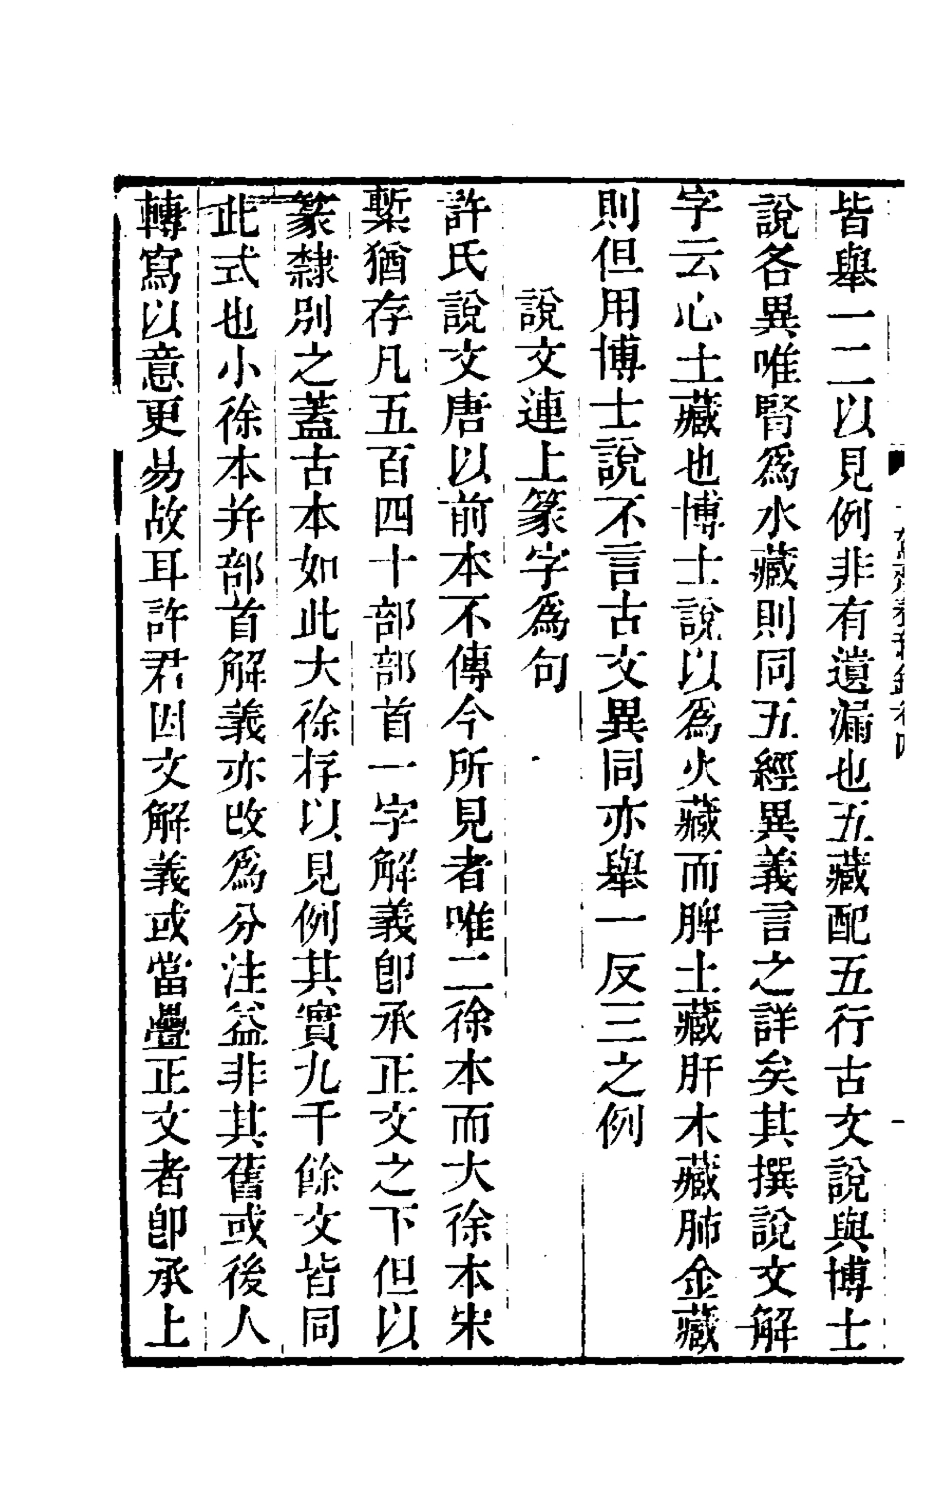 皆舉一二以見例非有遺漏也五藏配五行古文說與博士
說各異唯腎爲水藏則同五經異義言之詳矣其撰說文解
字云心土藏也博士說以爲火藏而脾土藏肝木藏肺金藏
則但用博士說不言古文異同亦舉一反三之例
說文連上篆字爲句
許氏說文唐以前本不傳今所見者唯二徐本而大徐本宋
槧猶存凡五百四十部部首一字解義卽承正文之下但以
篆隸別之蓋古本如此大徐存以見例其實九千餘文皆同
此式也小徐本幷部首解義亦改爲分注益非其舊或後人
轉寫以意更易故耳許君因文解義或當疊正文者卽承上